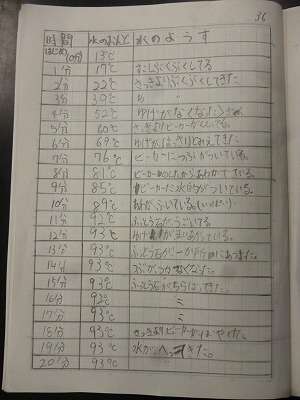 36
時間 水のおんど 水のようす
はじめ(0分) 13℃
1分 17℃ すこしぶくぶくしてる
2分 22℃ さっきよりぶくぶくしてきた。
3分 39℃ 〃
4分 52℃ ゆげがなくなった
5分 60℃ さっきよりビーカーが
6分 69℃ ゆげがはっきりみえてきた
7分 76℃ ビーカーにつぶがついている。
8分 81℃ ビーカーの下からあわがでている。
9分 85℃ ビーカーに水てきがついている。
10分 89℃ あわがういている。
11分 92℃ ふっとう石がうごいてる。
12分 93℃ ゆげがまわりからでている。
13分 93℃ ふっとう石が一か所にあつまった。
14分 93℃ つぶがつかなくなった。
15分 93℃ ふっとう石がちらばってきた。
16分 92℃ 〃
17分 93℃ 〃
18分 93℃ さっきよりビーカーが
19分 93℃ 水がへってきた。
20分 93℃